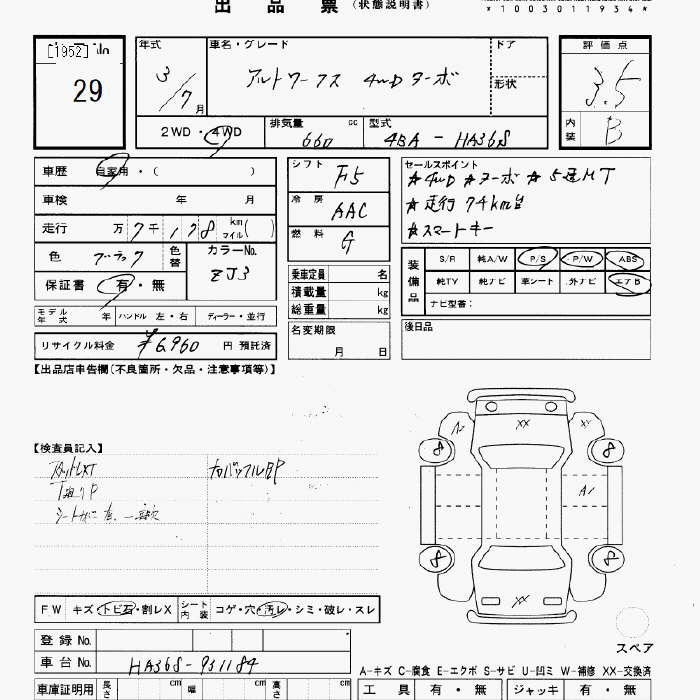 出品票(状態説明書)
*1003011934*
[1952]
29
年式 車名・グレード ドア 評価点
3/7月 アルトワークス 4WDターボ 形状 3.5
2WD・4WD 排気量 660 cc 型式 4BA-HA36S 内装 B
車歴 自家用・( )
車検 年 月
走行 万7千178km マイル( )
色 ブラック 色替 カラーNo. ZJ3
保証書 有・無
モデル年式 年 ハンドル 左・右 ディーラー・並行
リサイクル料金 ¥6,960 円 預託済
シフト F5
冷房 AAC
燃料 G
乗車定員 名
積載量 kg
総重量 kg
名変期限
月 日
セールスポイント
☆4WD ☆ターボ ☆5速MT
☆走行74km台
☆スマートキー
装備品 S/R 純A/W P/S P/W ABS
純TV 純ナビ 車シート 外ナビ エアB
ナビ型番:
後日品
【出品店申告欄(不良箇所・欠品・注意事項等)】
【検査員記入】
シート
FW キズ・トビ石・割レX シート内装 コゲ・穴・汚レ・シミ・破レ・スレ
登録No.
車台No. HA36S-931184
車庫証明用 長さ cm 幅 cm cm
A2 XX XY
8 8
A1
8 8
XX
スペア
A-キズ C-腐食 E-エクボ S-サビ U-凹ミ W-補修 XX-交換済
工具 有・無 ジャッキ 有・無